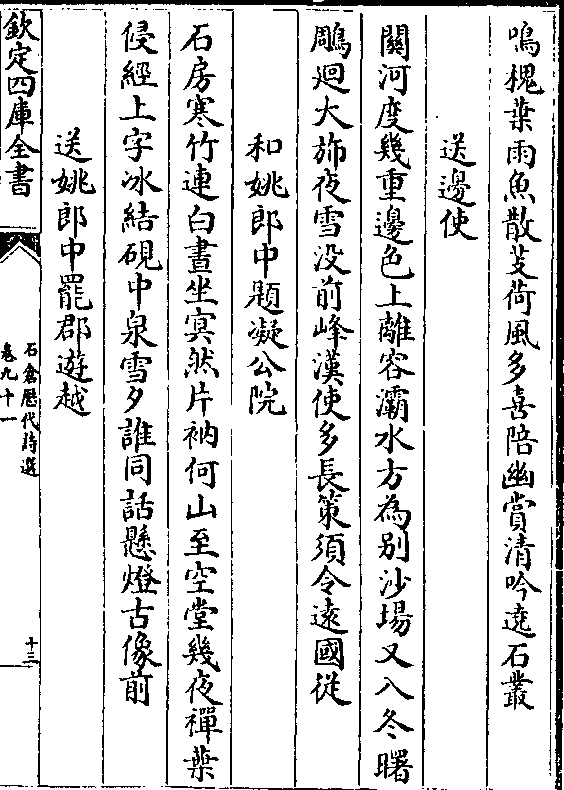 鳴槐葉雨魚散芰荷風多喜陪幽賞清吟遶石叢
送邊使
關河度幾重邊色上離容灞水方為别沙場又八冬曙
鵰迴大斾夜雪没前峰漢使多長策須令遠國從
和姚郎中題凝公院
石房寒竹連白晝坐㝠然片衲何山至空堂幾夜禪葉
侵經上字冰結硯中泉雪夕誰同話懸燈古像前
送姚郎中罷郡遊越
欽定四庫全書
石倉歷代詩選
卷九十一
十三